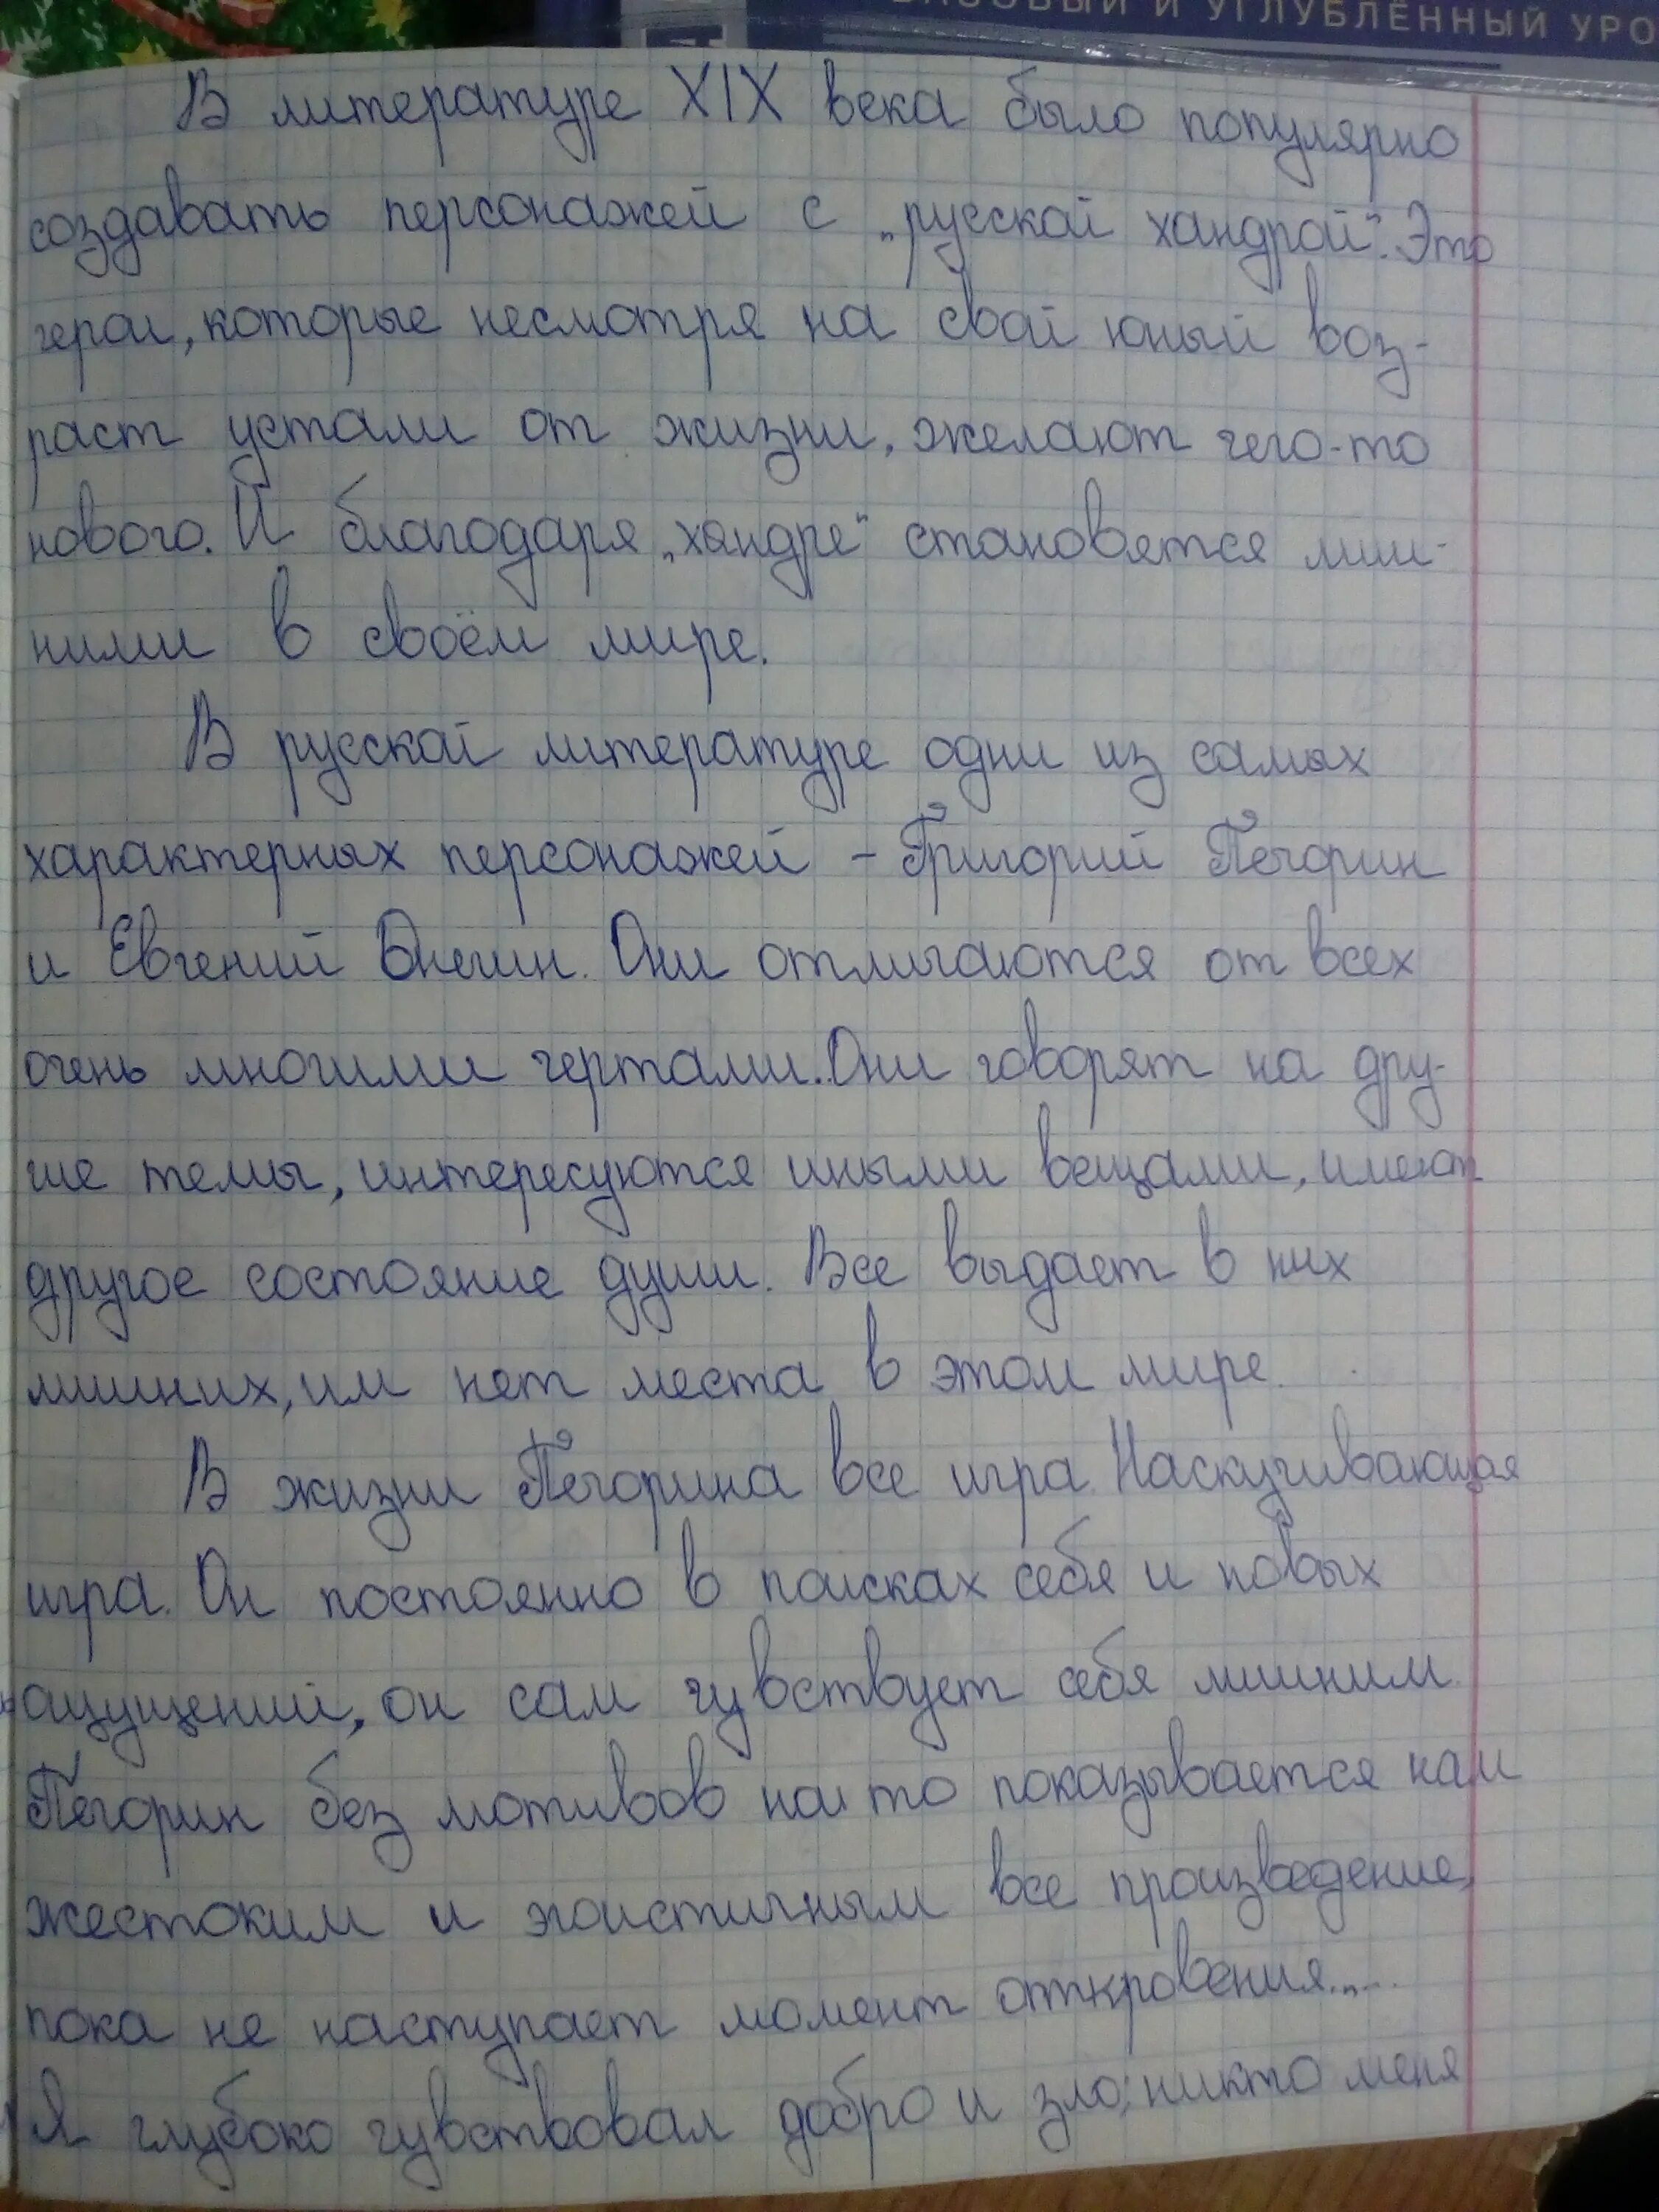 БАЗОВЫЙ И УГЛУБЛЁННЫЙ УРО
В литературе XIX века было популярно
создавать персонажей с „русской хандрой“. Это
герои, которые несмотря на свой юный воз-
раст устали от жизни, желают чего-то
нового. И благодаря „хандре“ становятся лиш-
ними в своём мире.
В русской литературе одни из самых
характерных персонажей – Григорий Печорин
и Евгений Онегин. Они отличаются от всех
очень многими чертами. Они говорят на дру-
гие темы, интересуются иными вещами, имеют
другое состояние души. Все выдает в них
лишних, им нет места в этом мире.
В жизни Печорина все игра. Наскучивающая
игра. Он постоянно в поисках себя и новых
ощущений, он сам чувствует себя лишним.
Печорин без мотивов на то показывается нам
жестоким и эгоистичным все произведение,
пока не наступает момент откровения....
„Я глубоко чувствовал добро и зло; никто меня